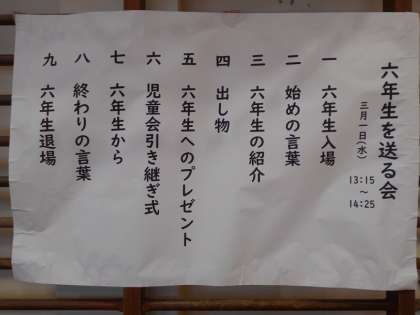 六年生を送る会
三月一日(水)
13:15
~
14:25
一 六年生入場
二 始めの言葉
三 六年生の紹介
四 出し物
五 六年生へのプレゼント
六 児童会引き継ぎ式
七 六年生から
八 終わりの言葉
九 六年生退場